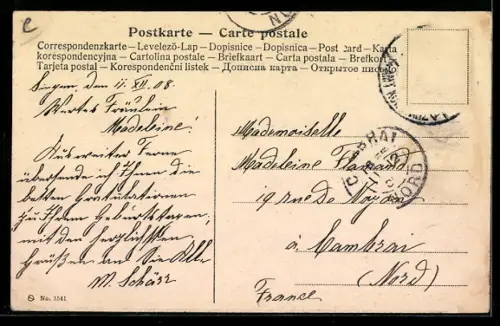 Postkarte — Carte postale
Correspondenzkarte – Levelező-Lap – Dopisnice – Dopisnica – Post card – Karta
korespondencyjna – Cartolina postale – Briefkaart – Carta postala – Brefkort
Tarjeta postal – Korespondenční lístek – Дописна карта – Открытое письмо
Singen, den 11. XII. 08.
Wertes Fräulein
Madeleine!
Aus weiter Ferne
übersende ich Ihnen die
besten Gratulationen
zu Ihrem Geburtstage,
mit den herzlichsten
Grüßen an Sie Alle
M. Schärr
Mademoiselle
Madeleine Flamand
19 rue de Noyon
à Cambrai
(Nord)
France
CAMBRAI
NORD
No. 5541